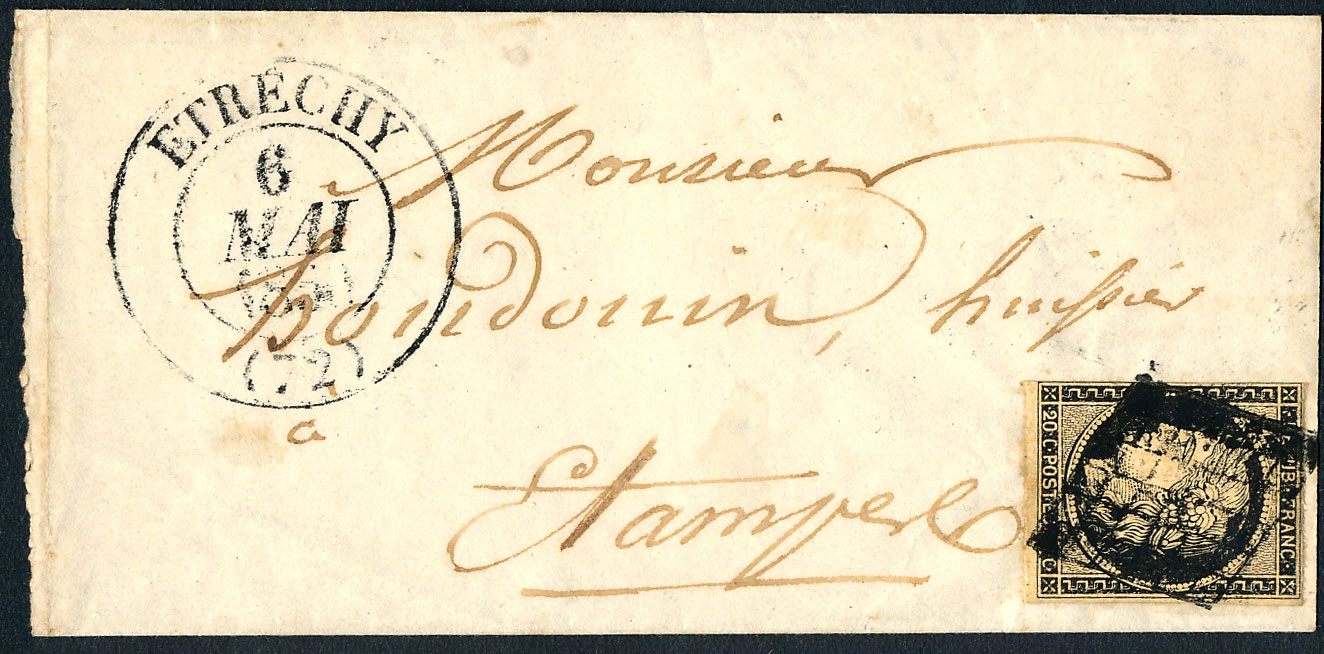 ETRECHY
6
MAI
(72)
Monsieur
à
houdouin, huissier
a
Etampes
20 C. POSTE
REPUB. FRANC.